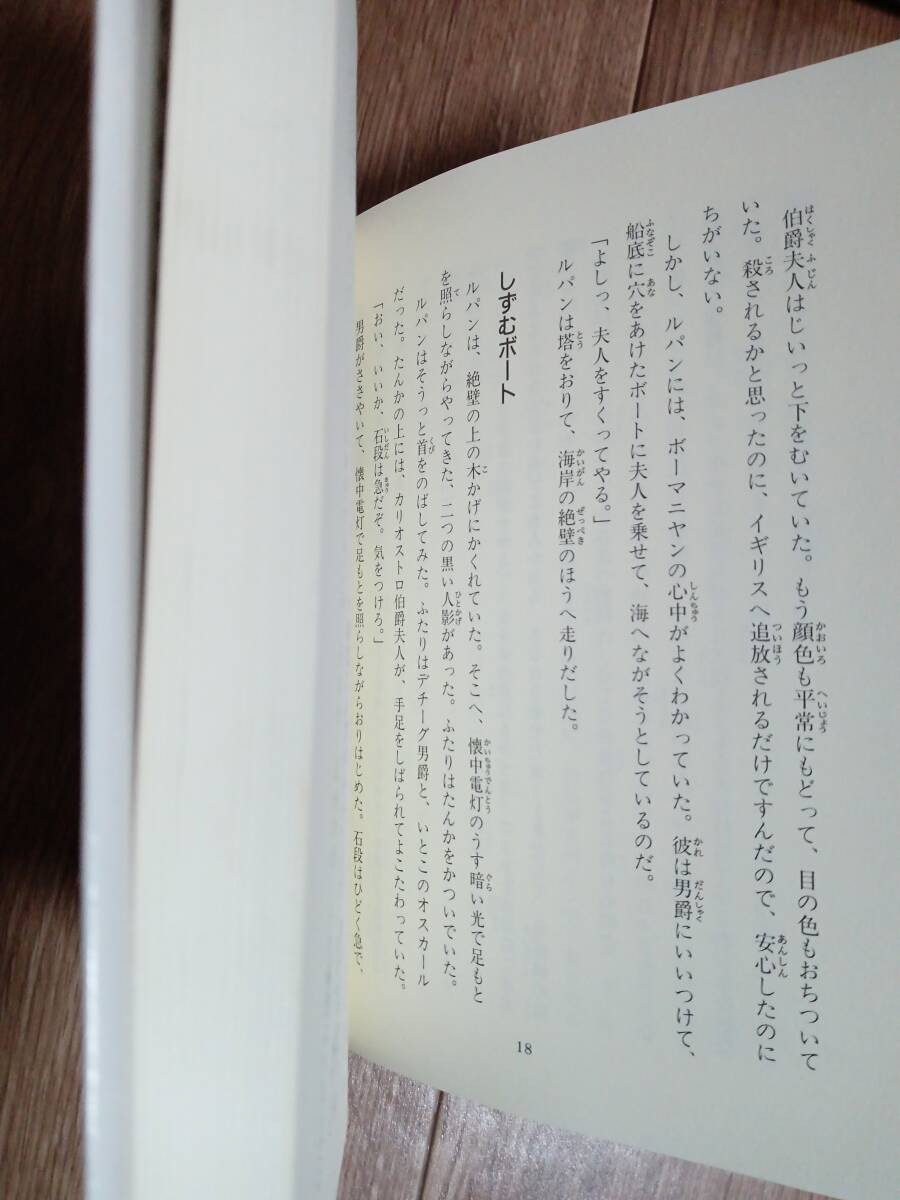 伯爵夫人はじいっと下をむいていた。もう顔色も平常にもどって、目の色もおちついて
いた。殺されるかと思ったのに、イギリスへ追放されるだけですんだので、安心したのに
ちがいない。
しかし、ルパンには、ボーマニヤンの心中がよくわかっていた。彼は男爵にいいつけて、
船底に穴をあけたボートに夫人を乗せて、海へながそうとしているのだ。
「よしっ、夫人をすくってやる。」
ルパンは塔をおりて、海岸の絶壁のほうへ走りだした。
しずむボート
ルパンは、絶壁の上の木かげにかくれていた。そこへ、懐中電灯のうす暗い光で足もと
を照らしながらやってきた、二つの黒い人影があった。ふたりはたんかをかついでいた。
ルパンはそうっと首をのばしてみた。ふたりはデチーグ男爵と、いとこのオスカール
だった。たんかの上には、カリオストロ伯爵夫人が、手足をしばられてよこたわっていた。
「おい、いいか、石段は急だぞ。気をつけろ。」
男爵がささやいて、懐中電灯で足もとを照らしながらおりはじめた。石段はひどく急で、
18